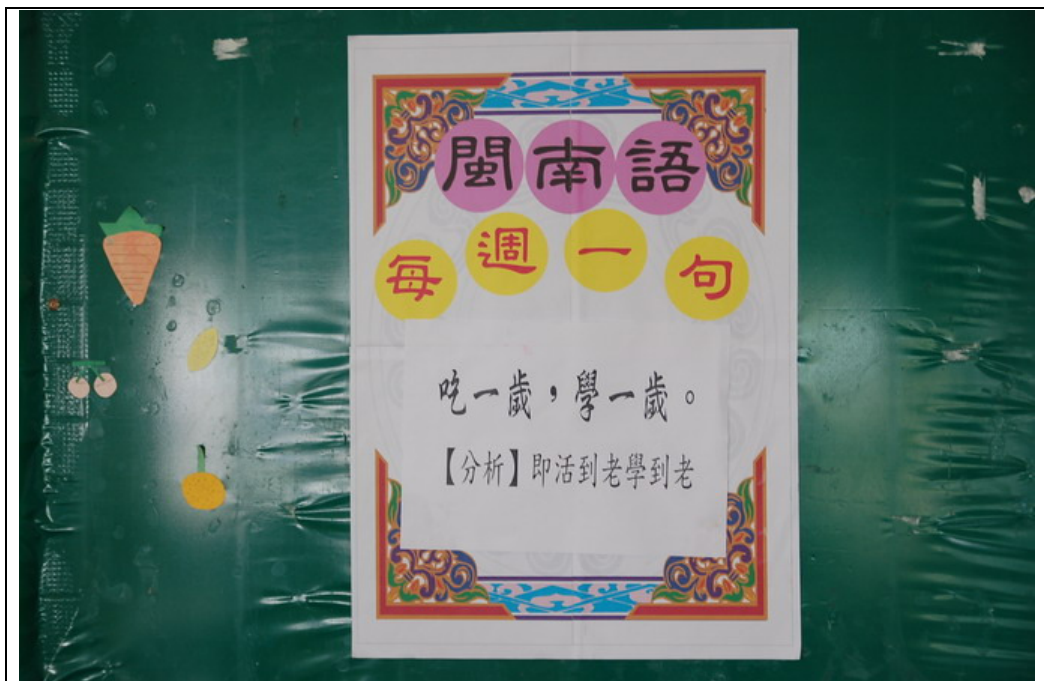 閩南語
每週一句
吃一歲，學一歲。
【分析】即活到老學到老